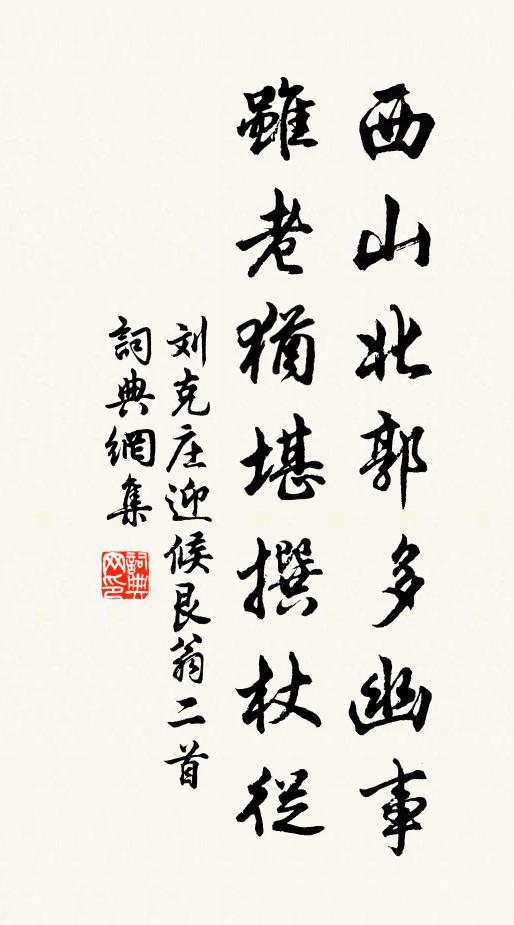 西山北郭多幽事
雖老猶堪撰杖從
刘克庄迎候艮翁二首
詞典網集
詞典網印